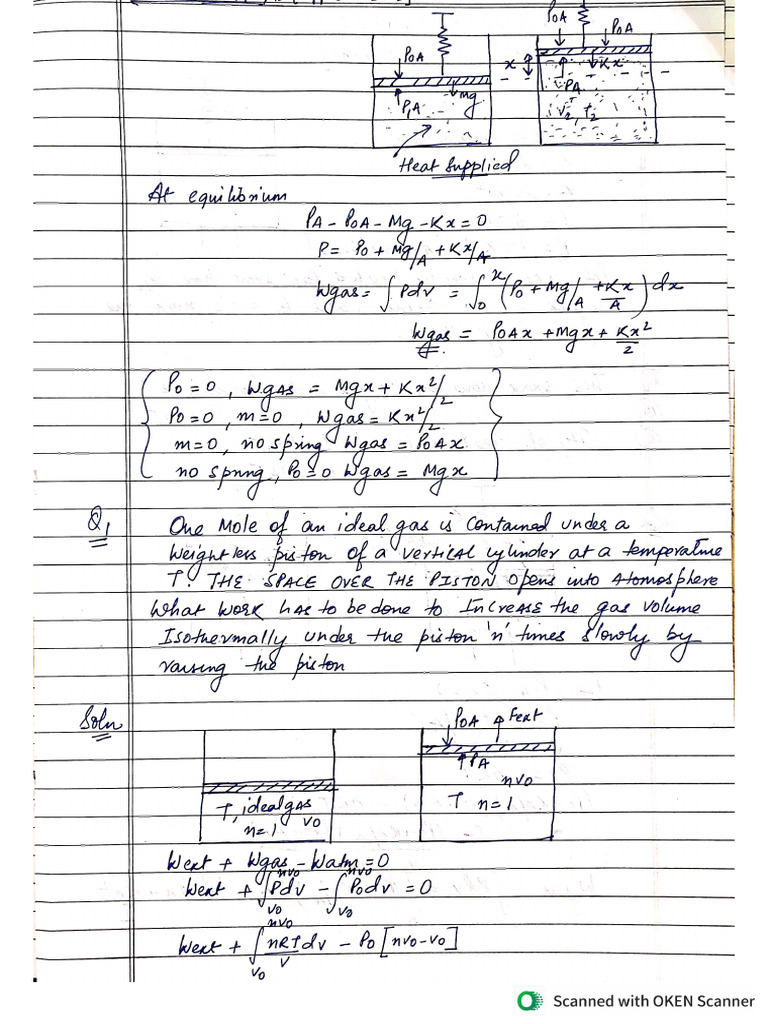 P0A
P0A
P0A
Kx
x
PA
mg
P1A
V2, T2
Heat Supplied
At equilibrium
PA - P0A - Mg - Kx = 0
P = P0 + Mg/A + Kx/A
Wgas = ∫ Pdv = ∫0^x (P0 + Mg/A + Kx/A) dx
Wgas = P0Ax + Mgx + Kx²/2
P0 = 0, WgAs = Mgx + Kx²/2
P0 = 0, m = 0, Wgas = Kx²/2
m = 0, no spring Wgas = P0Ax
no spring, P0 = 0 Wgas = Mgx
Q1 One Mole of an ideal gas is Contained under a
weightless piston of a vertical cylinder at a temperature
T. THE SPACE OVER THE PISTON Opens into Atomosphere
What WORK HAS to be done to INCREASE the gas volume
Isothermally under the piston 'n' times slowly by
raising the piston
Soln
P0A Fext
PA
nv0
T n=1
T, ideal gas
n=1 v0
Wext + Wgas - Watm = 0
Wext + ∫v0^nv0 Pdv - ∫v0^nv0 P0dv = 0
Wext + ∫v0^nv0 nRT/v dv - P0 [nv0 - v0]
Scanned with OKEN Scanner